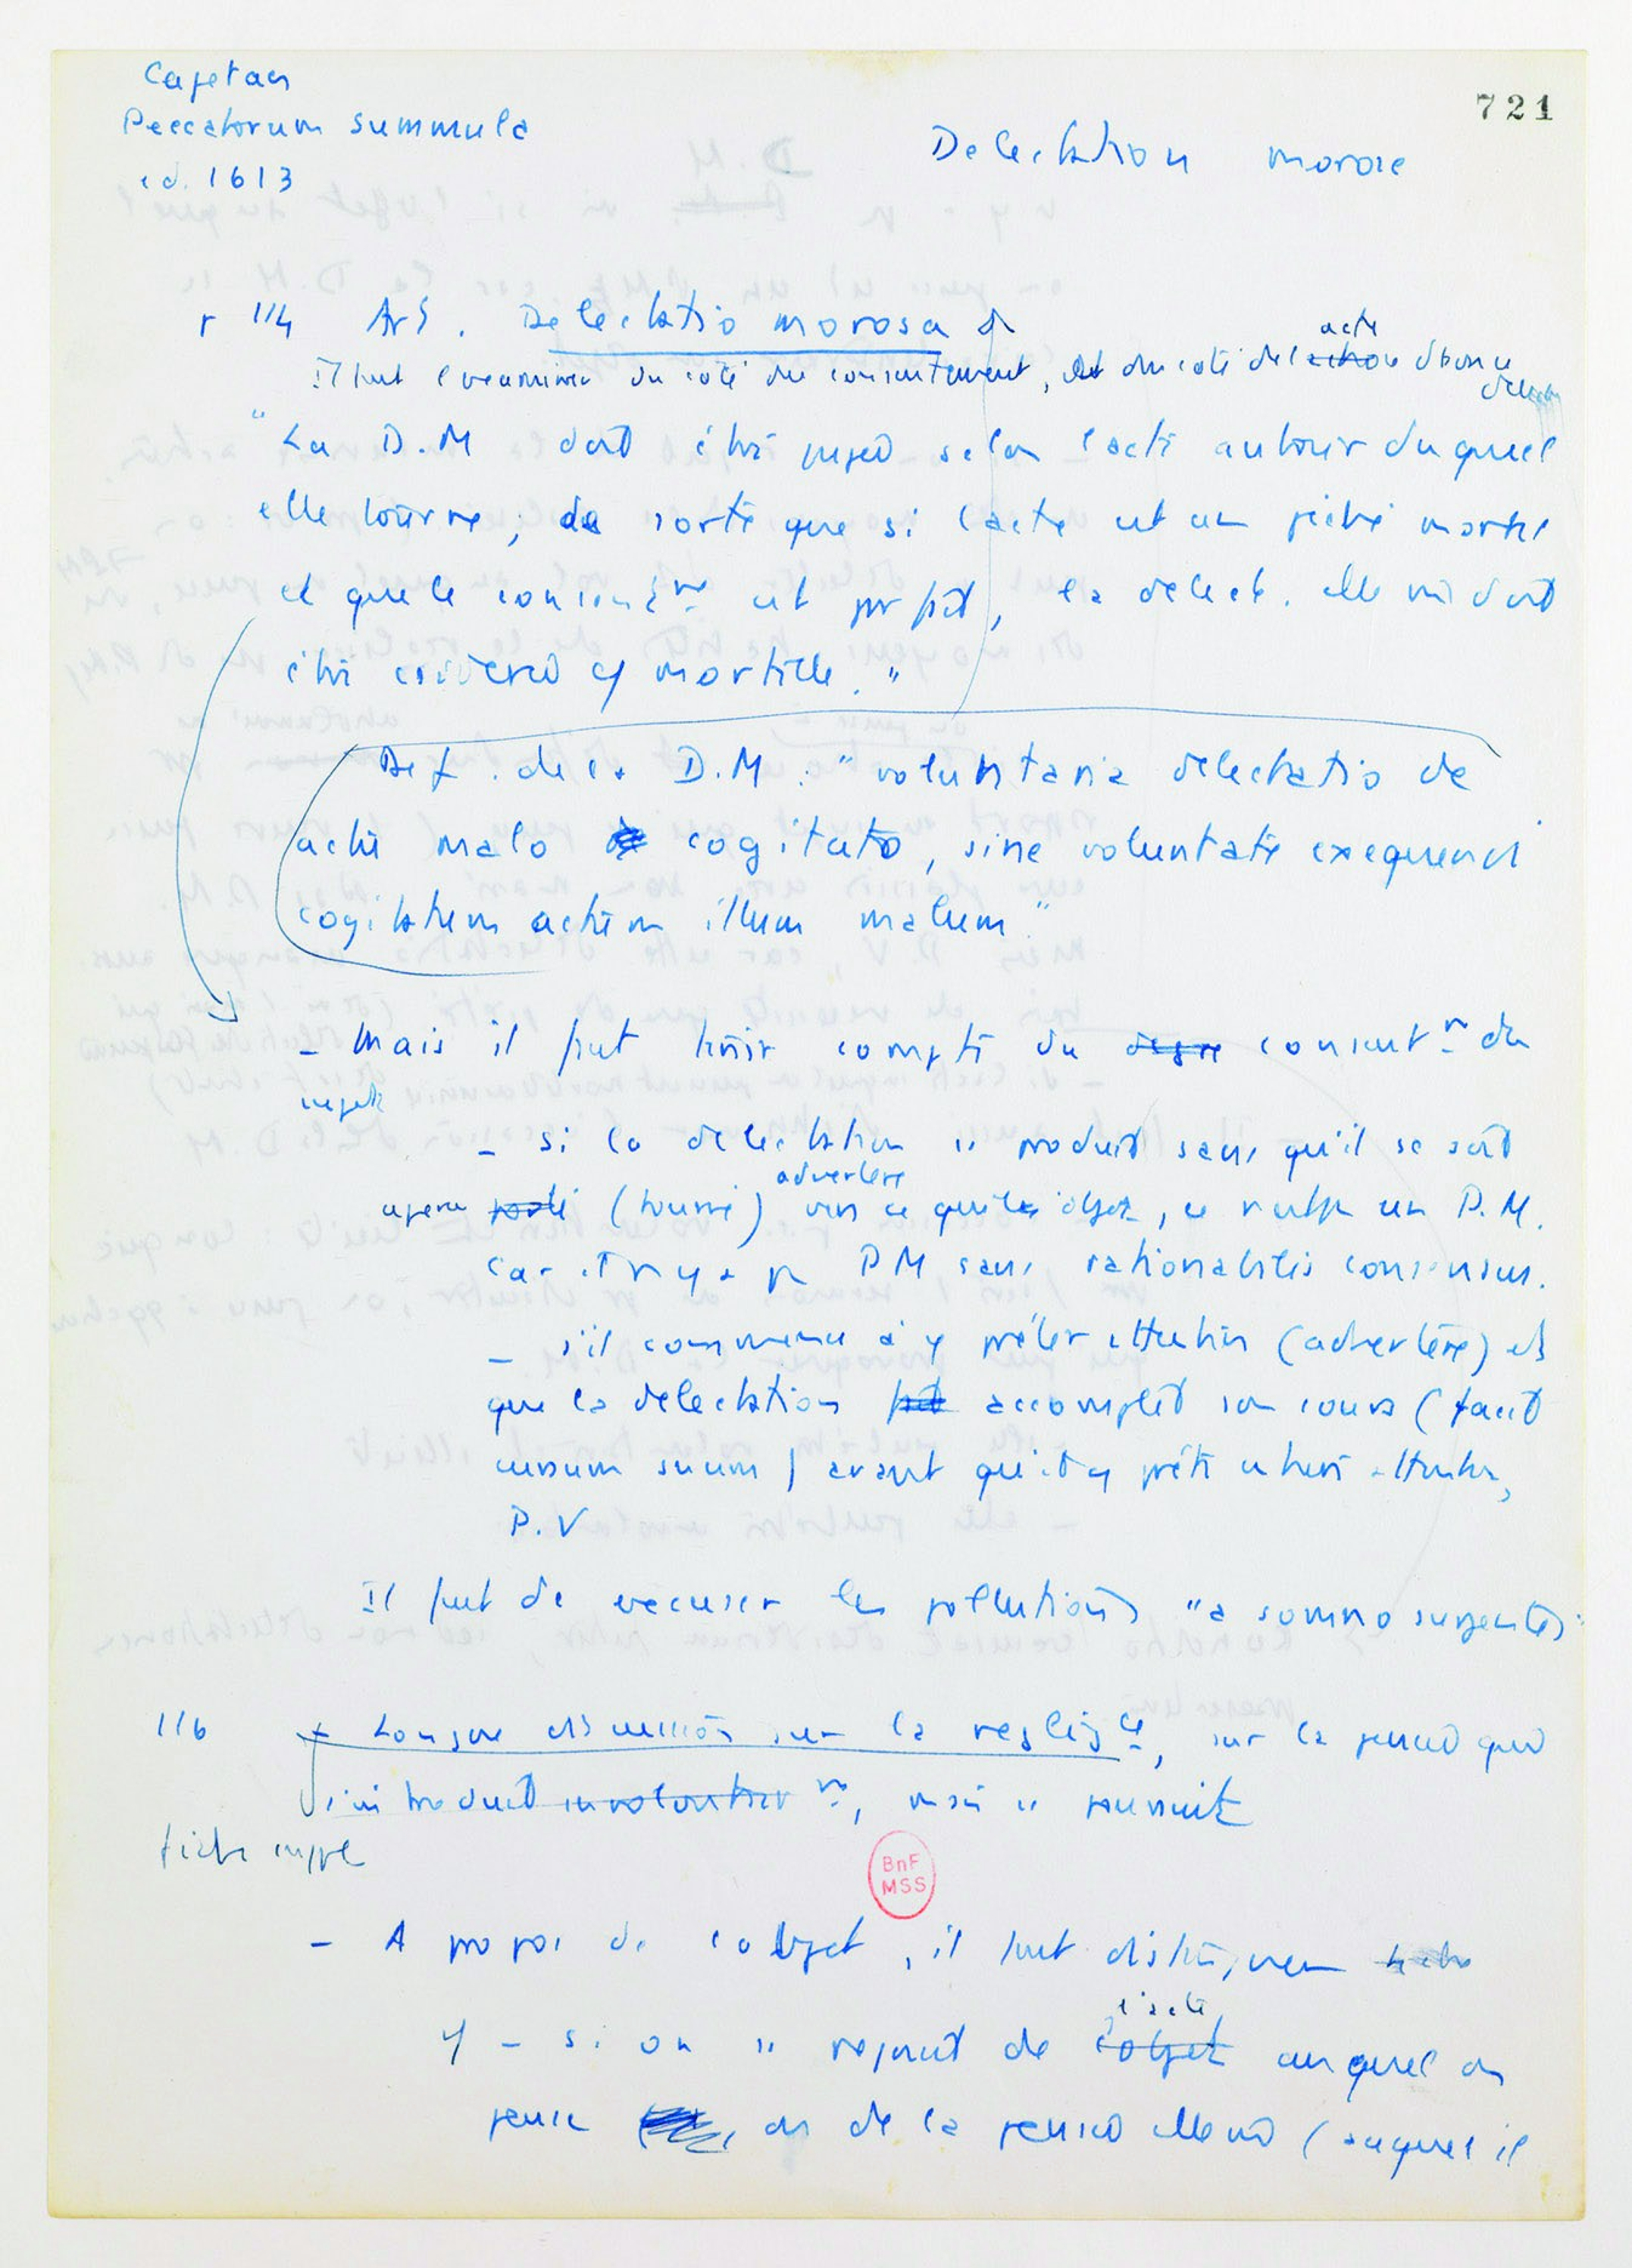 Cajetan
Peccatorum summula
ed. 1613
721
Delectation morose
p 114 Art. Delectatio morosa
Il faut l'examiner du côté du consentement, et du côté de l'action acte
"La D.M doit être jugée selon l'acte autour duquel
elle tourne ; de sorte que si l'acte est un péché mortel
et que le consentmt est parfait, la delect. elle même doit
être considérée mortelle."
Def. de la D.M : "voluntaria delectatio de
actu malo cogitato, sine voluntate exequendi
cogitatum actum illum malum"
- Mais il faut tenir compte du degré consentmt du
sujet
- si la delectation se produit sans qu'il se soit
aperçu porté (tourné) advertere vers ce qui l'a objet, ce n'est pas un P.M.
car il n'y a pas PM sans rationabilis consensus.
- s'il commence à y prêter attention (advertere) et
que la delectation fait accomplit son cours (facit
cursum suum) avant qu'il y prête entière attention,
P.V
Il faut de excuser les pollutions "a somno surgentes"
116 + Longue discussion sur la negligce, sur la pensée qui
s'introduit involontairmt, mais se poursuit
fiche suppl
- A propos de l'objet, il faut distinguer
- si on se rejouit de l'objet l'acte auquel on
pense ou de la pensée elle mê (auquel il
BnF
MSS